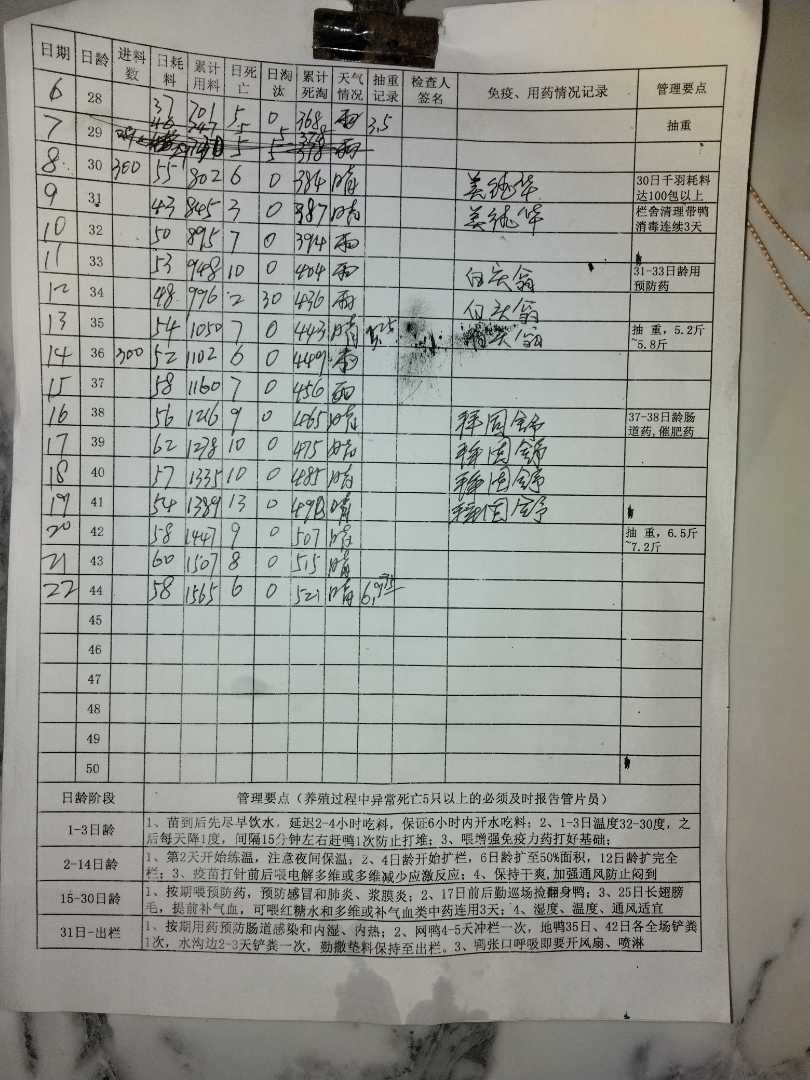 日期 日龄 进料数 日耗料 累计用料 日死亡 日淘汰 累计死淘 天气情况 抽重记录 检查人签名 免疫、用药情况记录 管理要点
6 28 37 701 5 0 368 雨 3.5 抽重
7 29 5 5 378 雨
8 30 300 55 802 6 0 384 晴 30日千羽耗料达100包以上
9 31 43 845 3 0 387 晴 栏舍清理带鸭消毒连续3天
10 32 50 895 7 0 394 雨
11 33 53 948 10 0 404 雨 白头翁 31-33日龄用预防药
12 34 48 996 2 30 436 雨 白头翁
13 35 54 1050 7 0 443 晴 白头翁 抽 重，5.2斤~5.8斤
14 36 300 52 1102 6 0 449 雨
15 37 58 1160 7 0 456 雨
16 38 56 1216 9 0 465 晴 37-38日龄肠道药,催肥药
17 39 62 1278 10 0 475 晴
18 40 57 1335 10 0 485 晴
19 41 54 1389 13 0 498 晴
20 42 58 1447 9 0 507 晴 抽 重，6.5斤~7.2斤
21 43 60 1507 8 0 515 晴
22 44 58 1565 6 0 521 晴
45
46
47
48
49
50
日龄阶段 管理要点（养殖过程中异常死亡5只以上的必须及时报告管片员）
1-3日龄 1、苗到后先尽早饮水，延迟2-4小时吃料，保证6小时内开水吃料；2、1-3日温度32-30度，之
后每天降1度，间隔15分钟左右赶鸭1次防止打堆；3、喂增强免疫力药打好基础；
2-14日龄 1、第2天开始练温，注意夜间保温；2、4日龄开始扩栏，6日龄扩至50%面积，12日龄扩完全
栏；3、疫苗打针前后喂电解多维或多维减少应激反应；4、保持干爽,加强通风防止闷到
15-30日龄 1、按期喂预防药，预防感冒和肺炎、浆膜炎；2、17日前后勤巡场捡翻身鸭；3、25日长翅膀
毛，提前补气血，可喂红糖水和多维或补气血类中药连用3天；4、湿度、温度、通风适宜
31日-出栏 1、按期用药预防肠道感染和内湿、内热；2、网鸭4-5天冲栏一次，地鸭35日、42日各全场铲粪
1次，水沟边2-3天铲粪一次，勤撒垫料保持至出栏。3、鸭张口呼吸即要开风扇、喷淋